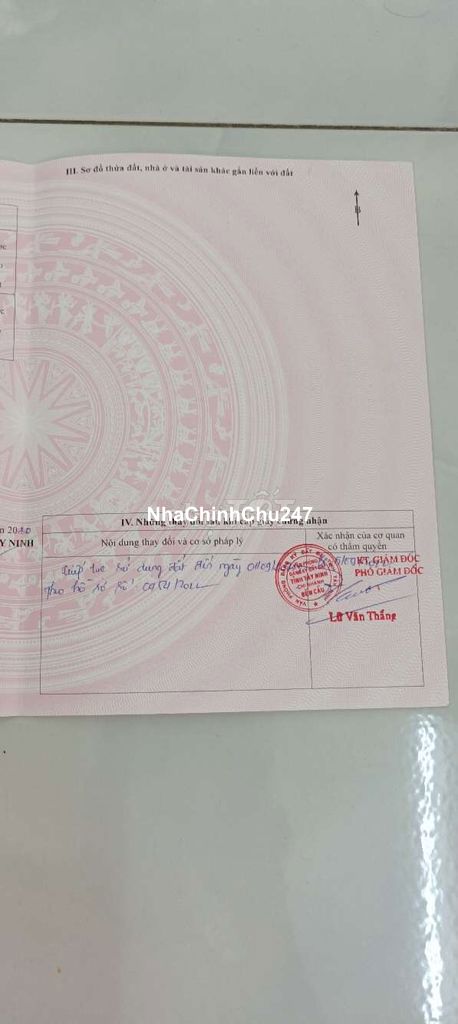 III. Sơ đồ thửa đất, nhà ở và tài sản khác gắn liền với đất
B
NhaChinhChu247
IV. Những thay đổi sau khi cấp giấy chứng nhận
Y NINH
Nội dung thay đổi và cơ sở pháp lý
Xác nhận của cơ quan
có thẩm quyền
sử dụng đất đến ngày
theo hồ sơ số
KT. GIÁM ĐỐC
PHÓ GIÁM ĐỐC
TỈNH TÂY NINH
CHI NHÁNH
BẾN CẦU
Lữ Văn Thắng